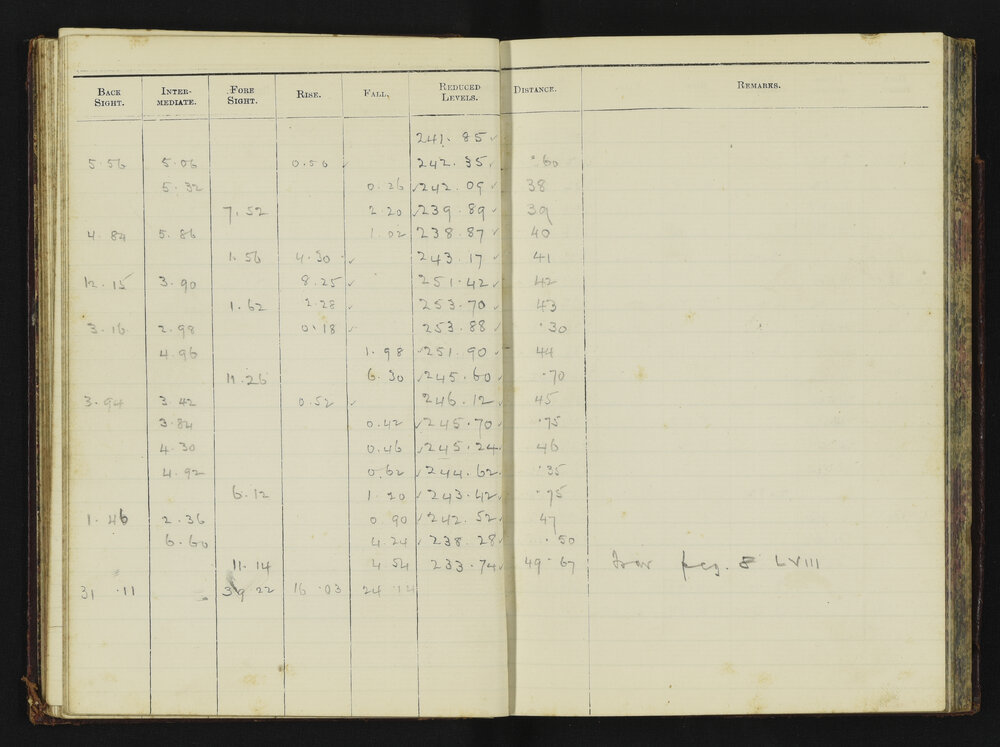 BACK SIGHT. INTER-MEDIATE. FORE SIGHT. RISE. FALL. REDUCED LEVELS. DISTANCE. REMARKS.
241.85
5.56 5.06 0.50 242.35 .60
5.32 0.26 242.09 38
7.52 2.20 239.89 39
4.84 5.86 1.02 238.87 40
1.56 4.30 243.17 41
12.15 3.90 8.25 251.42 42
1.62 2.28 253.70 43
3.16 2.98 0.18 253.88 .30
4.96 1.98 251.90 44
11.26 6.30 245.60 .70
3.94 3.42 0.52 246.12 45
3.84 0.42 245.70 .75
4.30 0.46 245.24 46
4.92 0.62 244.62 .35
6.12 1.20 243.42 .75
1.46 2.36 0.90 242.52 47
6.60 4.24 238.28 .50
11.14 4.54 233.74 49.67 peg. 8 LVIII
31.11 39.22 16.03 24.14